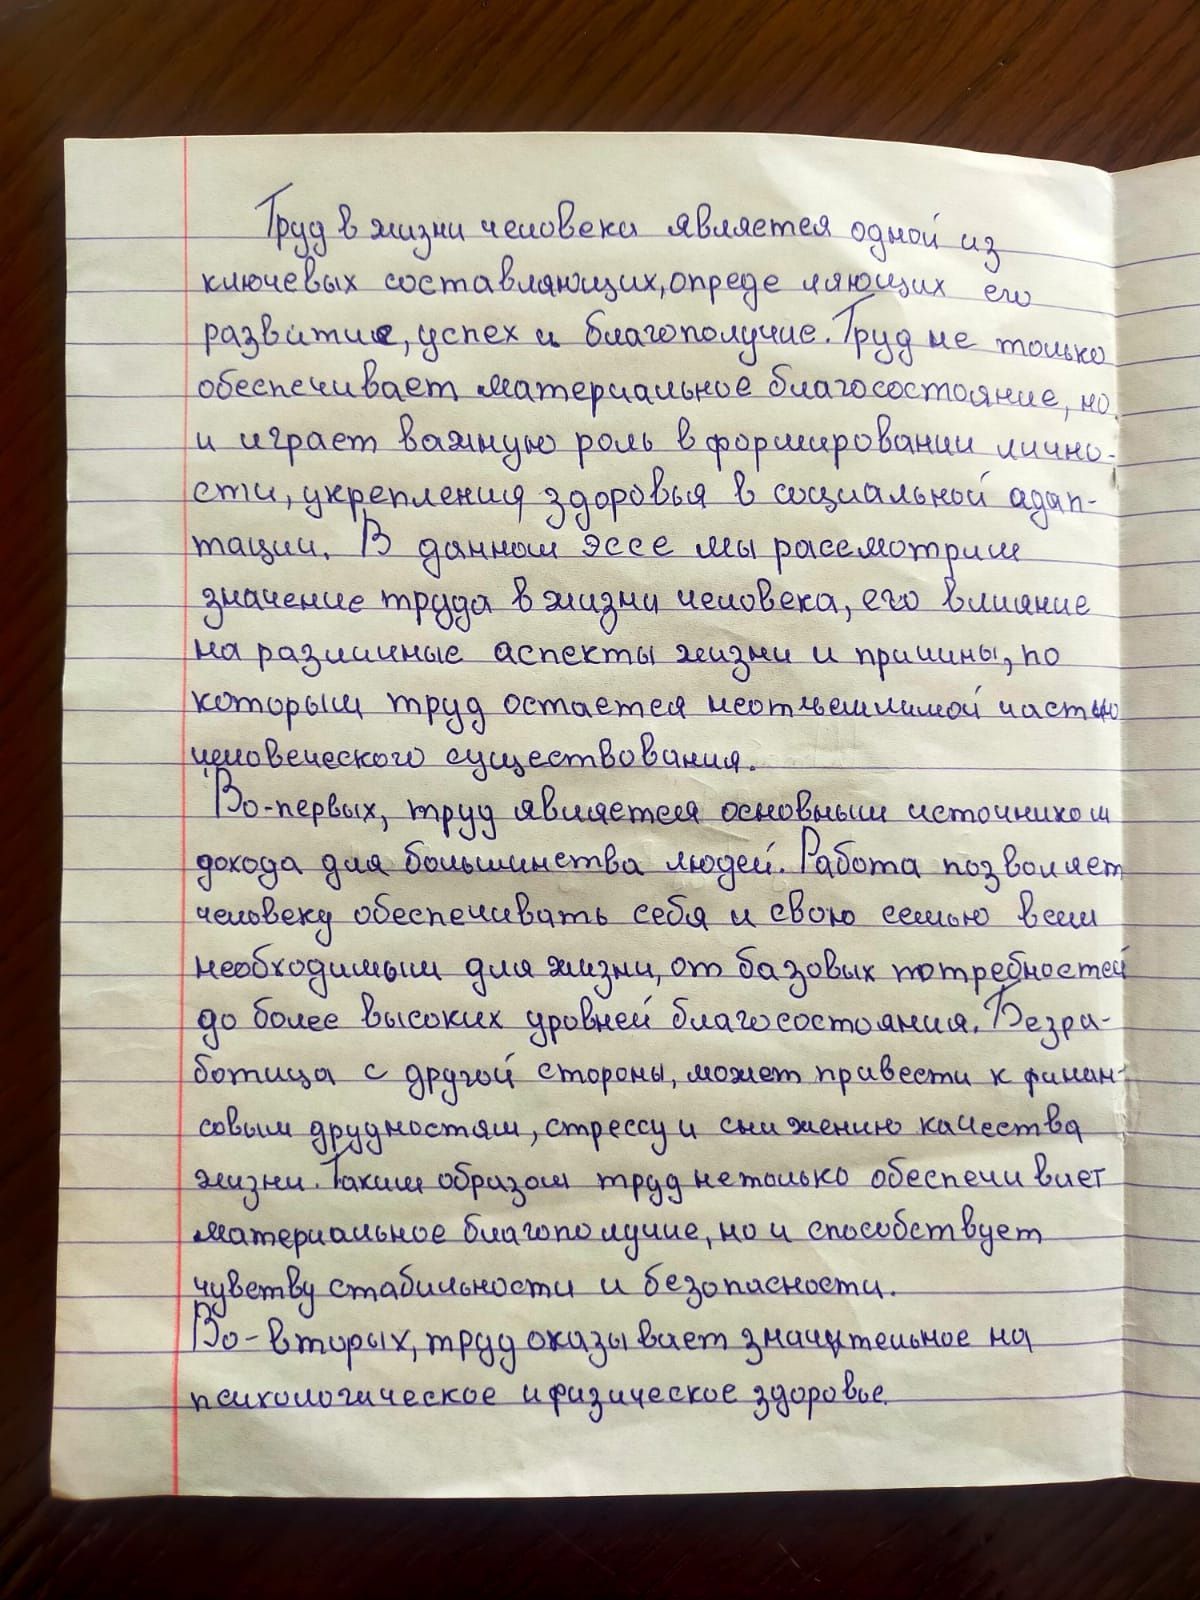 Труд в жизни человека является одной из
ключевых составляющих, определяющих его
развитие, успех и благополучие. Труд не только
обеспечивает материальное благосостояние, но
и играет важную роль в формировании лично-
сти, укрепления здоровья в социальной адап-
тации. В данном эссе мы рассмотрим
значение труда в жизни человека, его влияние
на различные аспекты жизни и причины, по
которым труд остается неотъемлимой частью
человеческого существования.
Во-первых, труд является основным источником
дохода для большинства людей. Работа позволяет
человеку обеспечивать себя и свою семью всем
необходимым для жизни, от базовых потребностей
до более высоких уровней благосостояния. Безра-
ботица с другой стороны, может привести к финан-
совым друдностям, стрессу и снижению качества
жизни. Таким образом труд нетолько обеспечивает
материальное благополучие, но и способствует
чувству стабильности и безопасности.
Во-вторых, труд оказывает значительное на
психологическое и физическое здоровье.